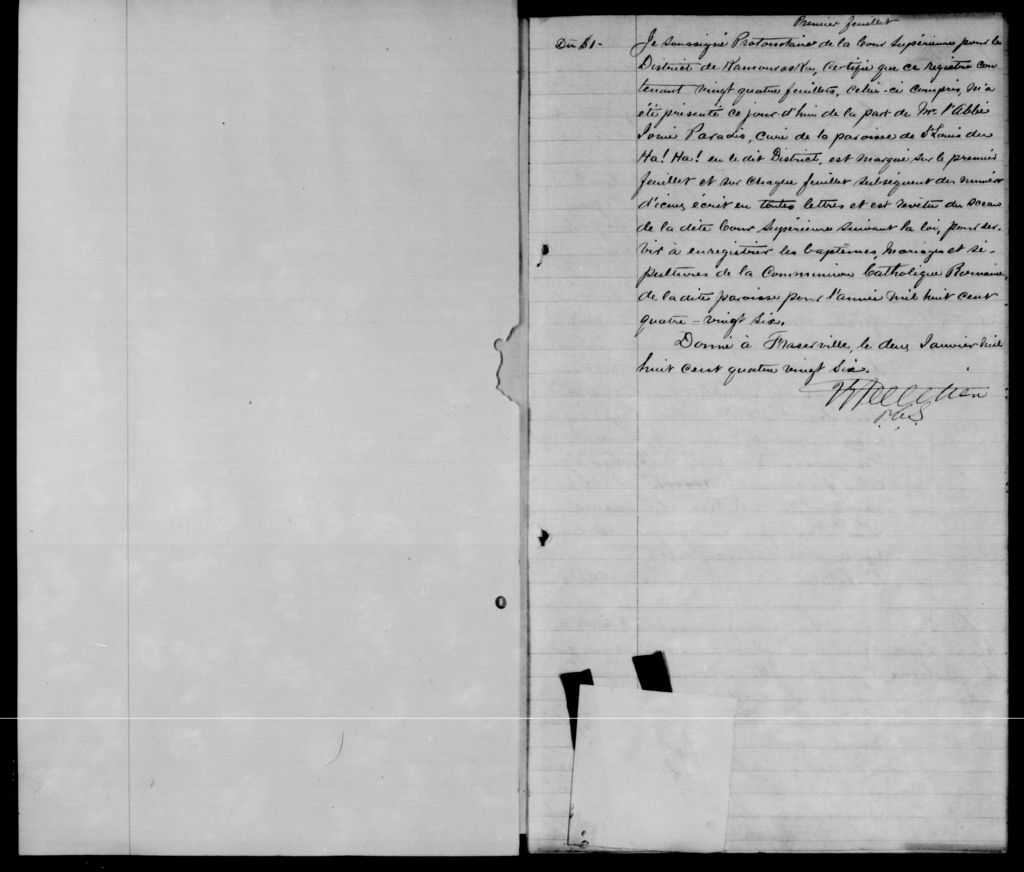 Premier feuillet
Je soussigné Protonotaire de la Cour Supérieure pour le
District de Kamouraska, certifie que ce registre con
tenant vingt quatre feuillets, celui-ci compris, m'a
été présenté ce jour d'hui de la part de Mr. l'Abbé
Paradis, curé de la paroisse de St Louis du
Ha! Ha! en le dit District, est marqué sur le premier
feuillet et sur chaque feuillet subséquent du numéro
d'iceux écrit en toutes lettres et est revêtu du sceau
de la dite Cour Supérieure suivant la loi, pour ser-
vir à enregistrer les baptêmes, mariages et sé-
pultures de la Communion Catholique Romaine,
de la dite paroisse pour l'année mil huit cent
quatre-vingt six.
Donné à Fraserville, le deux Janvier mil
huit cent quatre vingt six.
P.C.S.